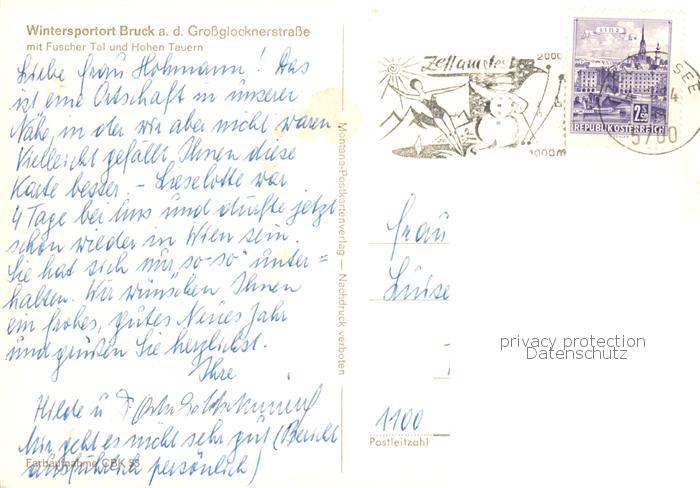 Wintersportort Bruck a. d. Großglocknerstraße
mit Fuscher Tal und Hohen Tauern
Liebe Frau Hohmann! Das
ist eine Ortschaft in unserer
Nähe, in der wir aber nicht waren
Vielleicht gefällt Ihnen diese
Karte besser. – Lieselotte war
4 Tage bei uns und durfte jetzt
schon wieder in Wien sein.
Sie hat sich nur "so-so" unter=
halten. Wir wünschen Ihnen
ein frohes, gutes Neues Jahr
und grüßen Sie herzlichst.
Ihre
Hilde u
Mir geht es nicht sehr gut (Bericht
ausführlich persönlich)
Farbaufnahme CBK 53
Montana-Postkartenverlag — Nachdruck verboten
Zell am See
2000
1000m
LINZ
2.50
REPUBLIK ÖSTERREICH
SEE
4
5700
Frau
Luise
privacy protection
Datenschutz
1100
Postleitzahl